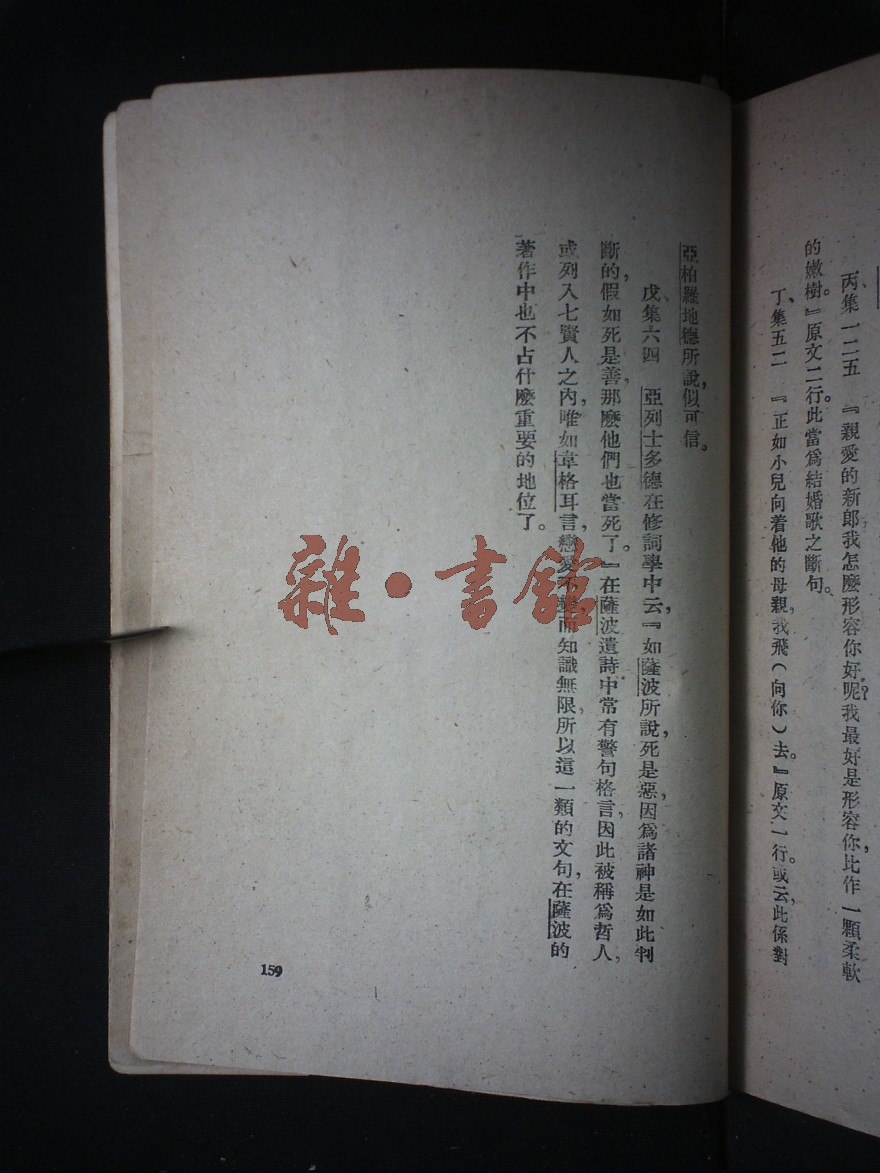 丙、集一二五　『親愛的新郎，我怎麼形容你好呢？我最好是形容你比作一顆柔軟
的嫩樹。』原文二行。此當爲結婚歌之斷句。
丁、集五二　『正如小兒向着他的母親，我飛（向你）去。』原文一行。或云，此係對
亞柏羅地德所說，似可信。
戊、集六四　亞列士多德在修詞學中云，『如薩波所說，死是惡，因爲諸神是如此判
斷的，假如死是善，那麼他們也當死了。』在薩波遺詩中常有警句格言，因此被稱爲哲人，
或列入七賢人之內，唯如韋格耳言，戀愛不而知識無限，所以這一類的文句，在薩波的
著作中也不占什麼重要的地位了。
159
雜・書館